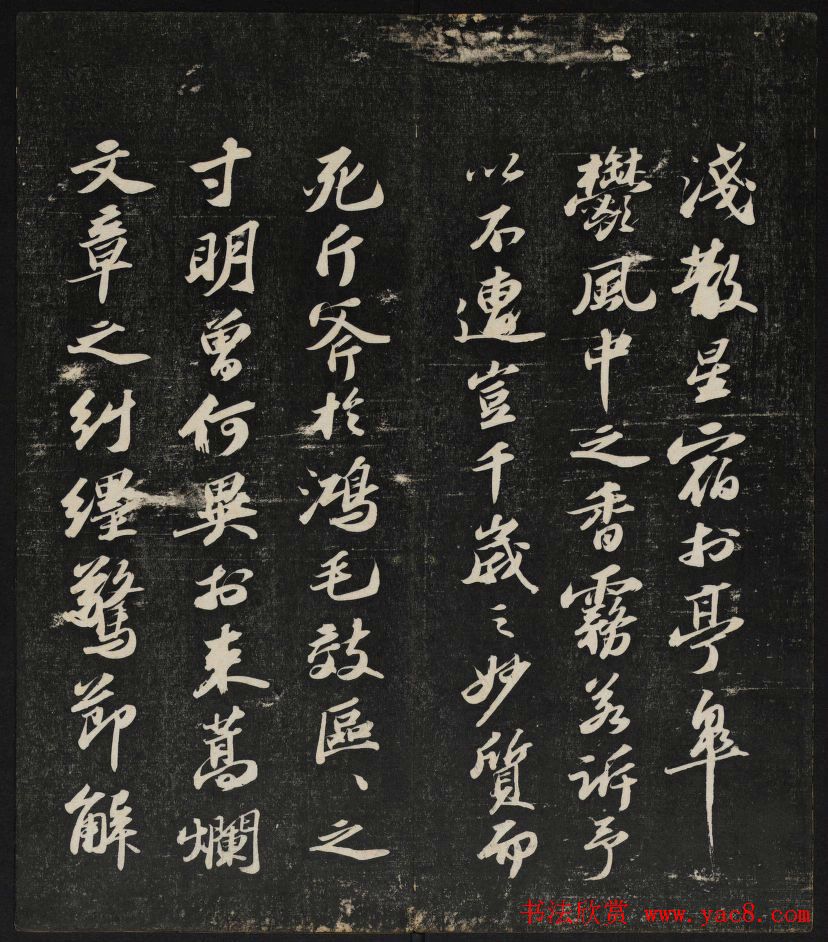 淺散星宿於亭皋
鬱風中之香霧若訴予
以不遭豈千歲之妙質而
死斤斧於鴻毛效區〻之
寸明曾何異於束蒿爛
文章之糾纆驚節解
书法欣赏 www.yac8.com